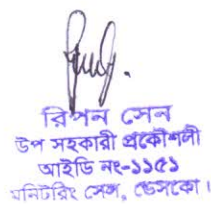 রিপন সেন
উপ সহকারী প্রকৌশলী
আইডি নং-১১৫১
মনিটরিং সেল, ডেসকো।